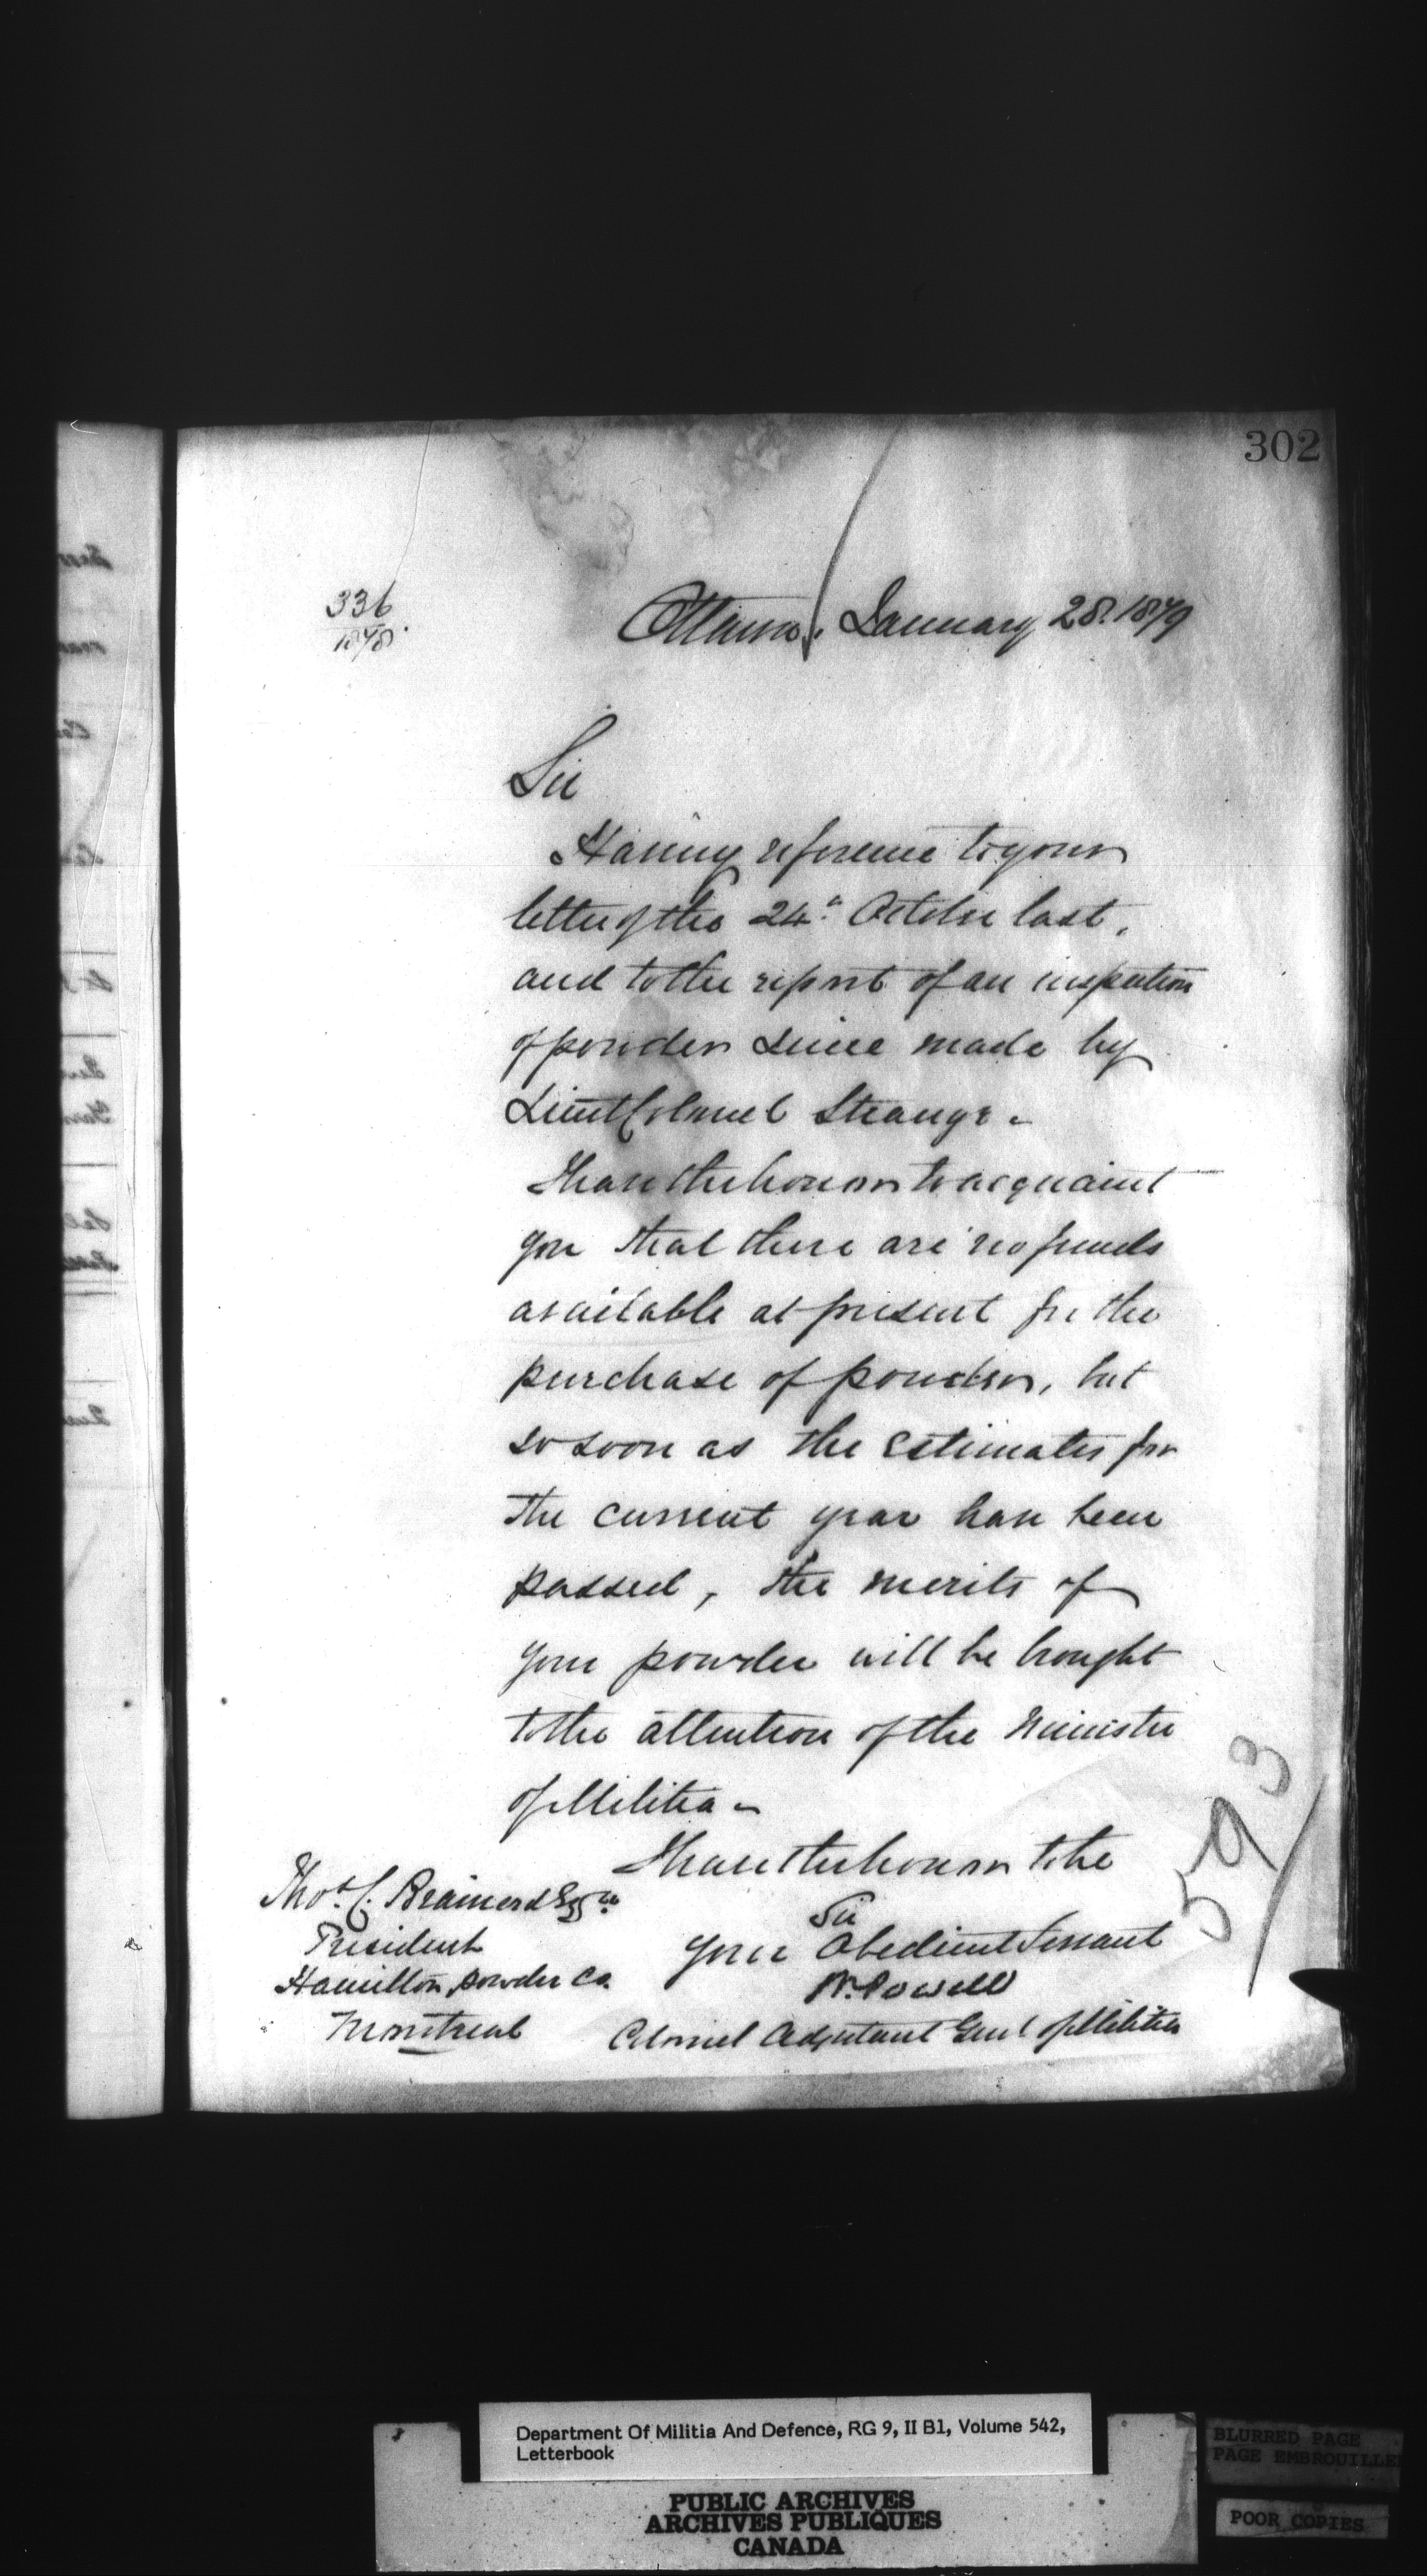 302
336
1878.
Ottawa. January 28. 1879
Sir
Having reference to your
letter of the 24th October last,
and to the report of an inspection
of powder since made by
Lieut Colonel Strange –
I have the honour to acquaint
you that there are no funds
available at present for the
purchase of powder, but
so soon as the Estimates for
the current year have been
passed, the merits of
your powder will be brought
to the attention of the Minister
of Militia –
I have the honour to be
Sir
Your Obedient Servant
W. Powell
Colonel Adjutant Genl of Militia
Thos. C. Brainerd Esqre.
President
Hamilton Powder Co.
Montreal
593
Department Of Militia And Defence, RG 9, II B1, Volume 542,
Letterbook
PUBLIC ARCHIVES
ARCHIVES PUBLIQUES
CANADA
BLURRED PAGE
PAGE EMBROUILLEE
POOR COPIES